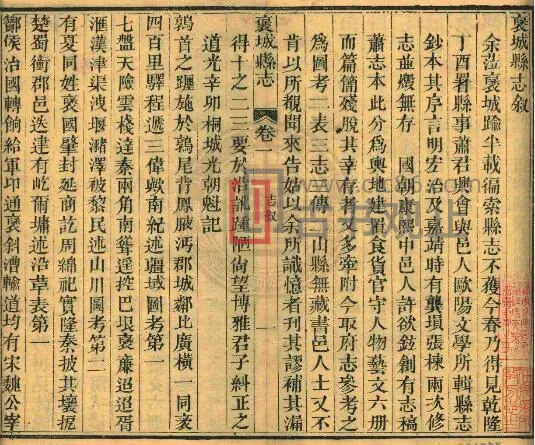 褒城縣志叙
余蒞襃城踰半載徧索縣志不獲今春乃得見乾隆
丁酉署縣事蕭君興會與邑人歐陽文學所輯縣志
鈔本其序言明宏治及嘉靖時有龔瑣張棟兩次修
志並燬無存 國朝康熙中邑人許欲𨧱創有志稿
蕭志本此分爲輿地建置食貨官守人物藝文六册
而篇簡殘脫其幸存者又多牽附今取府志參考之
爲圖考二表三志八傳一山縣無藏書邑人士又不
肯以所覩聞來告姑以余所識憶者刊其謬補其漏
得十之二三要於浩訛踵陋尚望博雅君子糾正之
道光辛卯桐城光朝魁記
褒城縣志 卷一 志叙 一
鶉首之躔施於鶉尾背鳳掖沔郡城鄰比廣橫一同袤
四百里驛程遞三偉歟南紀述疆域圖考第一
七盤天險雲棧達秦兩角南聳遥控巴垠褒廉迢迢胥
滙漢津渠洩堰瀦澤被黎民述山川圖考第二
有夏同姓襃國肇封延商訖周綿祀實隆秦披其壤扼
楚蜀衝郡邑迭建有屹爾墉述沿革表第一
酇侯治國轉餉給軍卭通褒斜漕輸道均有宋魏公宰